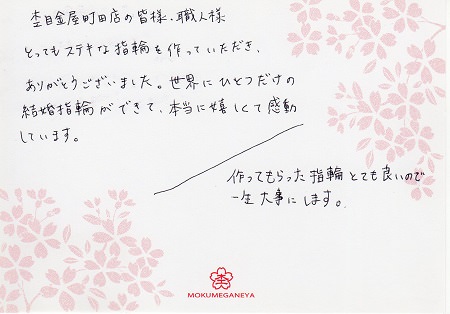 杢目金屋町田店の皆様、職人様
とってもステキな指輪を作っていただき、
ありがとうございました。世界にひとつだけの
結婚指輪ができて、本当に嬉しくて感動
しています。
作ってもらった指輪とても良いので
一生大事にします。
MOKUMEGANEYA